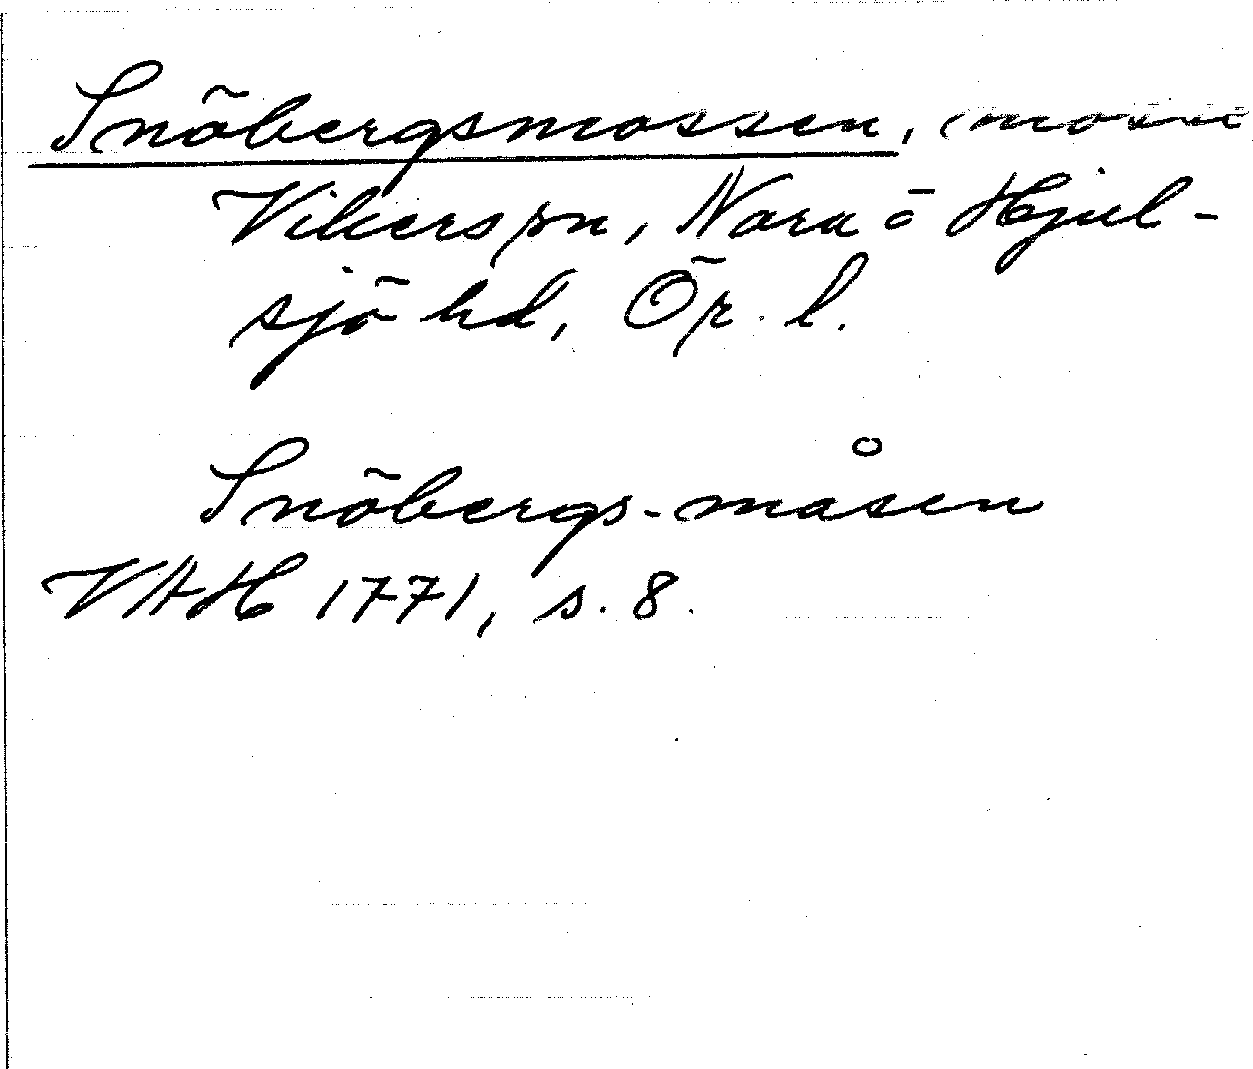 Snöbergsmossen, (mosse
Vikers sn, Nora o Hjul-
sjö hd, Ör. l.
Snöbergs-måsen
VAH 1771, s. 8.